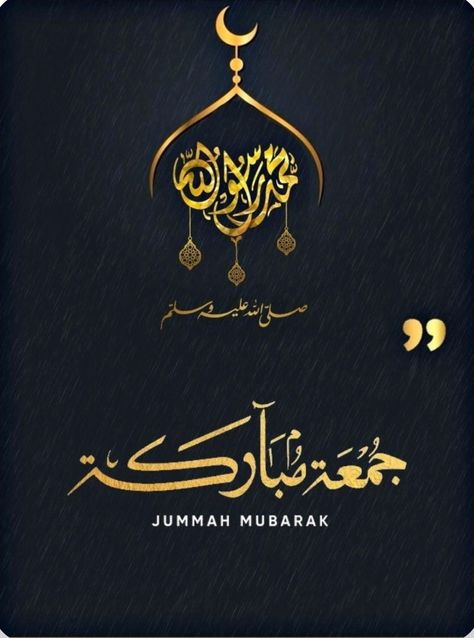 محمد رسول الله
صلى الله عليه وسلم
”
جُمُعَة مُبَارَكَة
JUMMAH MUBARAK